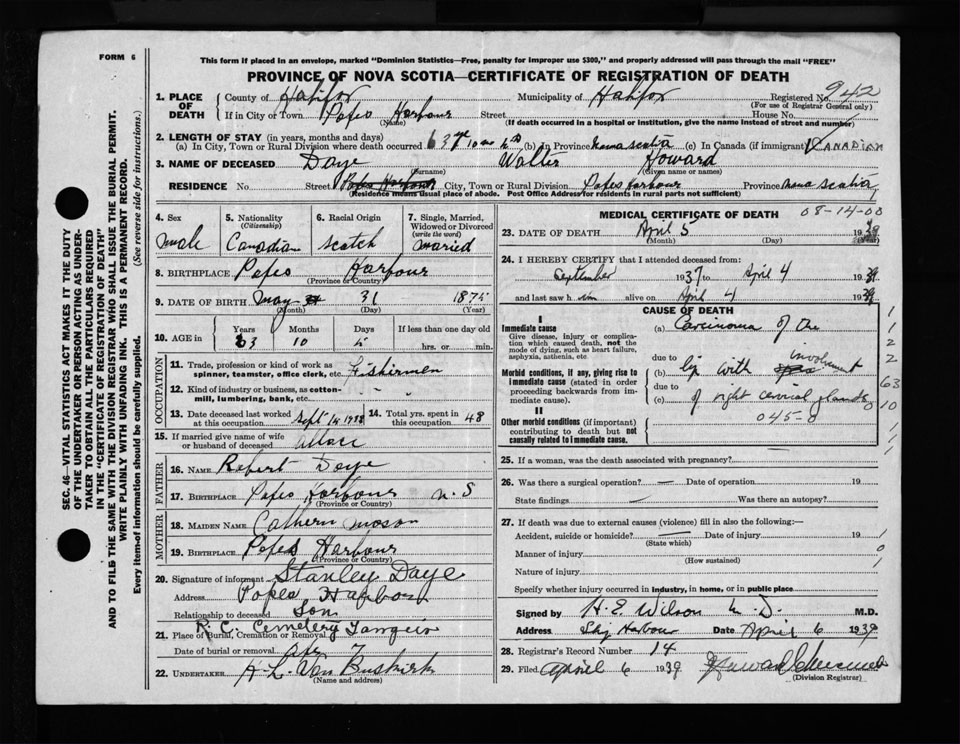 FORM 6
This form if placed in an envelope, marked "Dominion Statistics—Free, penalty for improper use $300," and properly addressed will pass through the mail "FREE"
PROVINCE OF NOVA SCOTIA—CERTIFICATE OF REGISTRATION OF DEATH
SEC. 46—VITAL STATISTICS ACT MAKES IT THE DUTY
OF THE UNDERTAKER OR PERSON ACTING AS UNDER-
TAKER TO OBTAIN ALL THE PARTICULARS REQUIRED
IN THE "CERTIFICATE OF REGISTRATION OF DEATH"
AND TO FILE THE SAME WITH THE DIVISION REGISTRAR WHO SHALL ISSUE THE BURIAL PERMIT.
WRITE PLAINLY WITH UNFADING INK. THIS IS A PERMANENT RECORD.
Every item of information should be carefully supplied. (See reverse side for instructions.)
1. PLACE OF DEATH County of Halifax Municipality of Halifax Registered No. 942
(For use of Registrar General only)
If in City or Town Popes Harbour Street House No.
(Name) (If death occurred in a hospital or institution, give the name instead of street and number)
2. LENGTH OF STAY (in years, months and days)
(a) In City, Town or Rural Division where death occurred 63 yr 10 mo (b) In Province nova scotia (c) In Canada (if immigrant) CANADIAN
3. NAME OF DECEASED Daye Walter Howard
(Surname) (Given name or names)
RESIDENCE No. Street Popes Harbour City, Town or Rural Division Popes Harbour Province nova scotia
(Residence means usual place of abode. Post Office Address for residents in rural parts not sufficient)
4. Sex
male
5. Nationality
(Citizenship)
Canadian
6. Racial Origin
scotch
7. Single, Married, Widowed or Divorced
(write the word)
maried
8. BIRTHPLACE Popes Harbour
(Province or Country)
9. DATE OF BIRTH may 31 1875
(Month) (Day) (Year)
10. AGE in Years Months Days If less than one day old
63 10 5 hrs. or min.
OCCUPATION
11. Trade, profession or kind of work as spinner, teamster, office clerk, etc. Fishermen
12. Kind of industry or business, as cotton-mill, lumbering, bank, etc.
13. Date deceased last worked at this occupation Sept 14 1938
14. Total yrs. spent in this occupation 48
15. If married give name of wife or husband of deceased
FATHER
16. NAME Robert Daye
17. BIRTHPLACE Popes Harbour n. S
(Province or Country)
MOTHER
18. MAIDEN NAME Cathern moson
19. BIRTHPLACE Popes Harbour
(Province or Country)
20. Signature of informant Stanley Daye
Address Popes Harbour
Relationship to deceased Son
21. Place of Burial, Cremation or Removal R.C. Cemetery Tangier
Date of burial or removal Apr 7
22. UNDERTAKER H L. Van Buskirk
(Name and address)
MEDICAL CERTIFICATE OF DEATH 08-14-00
23. DATE OF DEATH April 5 1939
(Month) (Day) (Year)
24. I HEREBY CERTIFY that I attended deceased from:
September 1937 to April 4 1939
and last saw h im alive on April 4 1939
CAUSE OF DEATH
I
Immediate cause
Give disease, injury or complication which caused death, not the mode of dying, such as heart failure, asphyxia, asthenia, etc.
(a) Carcinoma of the
due to
(b) lip with involvement
Morbid conditions, if any, giving rise to immediate cause (stated in order proceeding backwards from immediate cause).
due to
(c) of right cervical glands
II
Other morbid conditions (if important) contributing to death but not causally related to immediate cause.
045-0
1
1
2
2
63
10
1
1
25. If a woman, was the death associated with pregnancy?
26. Was there a surgical operation? — Date of operation 19
State findings Was there an autopsy?
27. If death was due to external causes (violence) fill in also the following:—
Accident, suicide or homicide? Date of injury 19
(State which)
Manner of injury
(How sustained)
Nature of injury
Specify whether injury occurred in industry, in home, or in public place
1
0
1
Signed by H. E. Wilson M. D. M.D.
Address Ship Harbour Date April 6 1939
28. Registrar's Record Number 14
29. Filed April 6 1939
(Division Registrar)